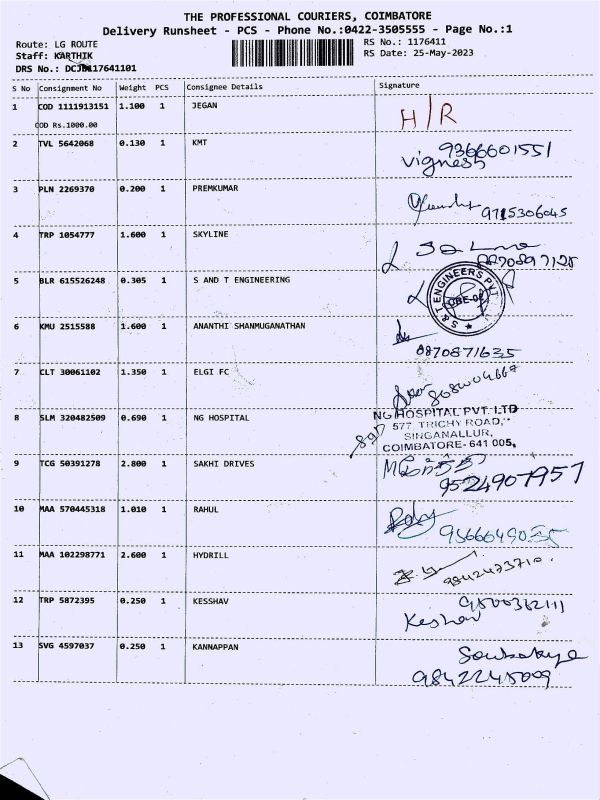 THE PROFESSIONAL COURIERS, COIMBATORE
Delivery Runsheet - PCS - Phone No.:0422-3505555 - Page No.:1
Route: LG ROUTE
RS No.: 1176411
Staff: KARTHIK
RS Date: 25-May-2023
DRS No.: DCJB117641101
S No Consignment No Weight PCS Consignee Details Signature
1 COD 1111913151 1.100 1 JEGAN H/R
COD Rs.1000.00
2 TVL 5642068 0.130 1 KMT 9366601551
Vignesh
3 PLN 2269370 0.200 1 PREMKUMAR
9715306045
4 TRP 1054777 1.600 1 SKYLINE
5 BLR 615526248 0.305 1 S AND T ENGINEERING S & T ENGINEERS PVT
6 KMU 2515588 1.600 1 ANANTHI SHANMUGANATHAN
0870871635
7 CLT 30061102 1.350 1 ELGI FC
8 SLM 320482509 0.690 1 NG HOSPITAL NG HOSPITAL PVT. LTD
577, TRICHY ROAD,
SINGANALLUR,
COIMBATORE-641 005.
9 TCG 50391278 2.800 1 SAKHI DRIVES
9524907957
10 MAA 570445318 1.010 1 RAHUL
11 MAA 102298771 2.600 1 HYDRILL
9842473710.
12 TRP 5872395 0.250 1 KESSHAV
Keshav
13 SVG 4597037 0.250 1 KANNAPPAN
9842245009